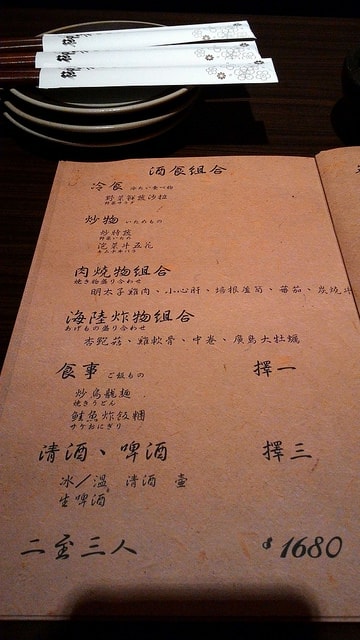 酒食組合
冷食 冷たい食べ物
野菜鮮蔬沙拉
野菜サラダ
炒物 いためもの
炒時蔬
野菜いため
泡菜牛五花
肉燒物組合
焼き物盛り合わせ
明太子雞肉、小心肝、培根蘆筍、蕃茄、炭燒
海陸炸物組合
あげもの盛り合わせ
杏鮑菇、雞軟骨、中卷、廣島大牡蠣
食事 ご飯もの 擇一
炒烏龍麵
焼きうどん
鮭魚炸飯糰
サケおにぎり
清酒、啤酒 擇三
冰/溫 清酒 壺
生啤酒
二至三人 $1680